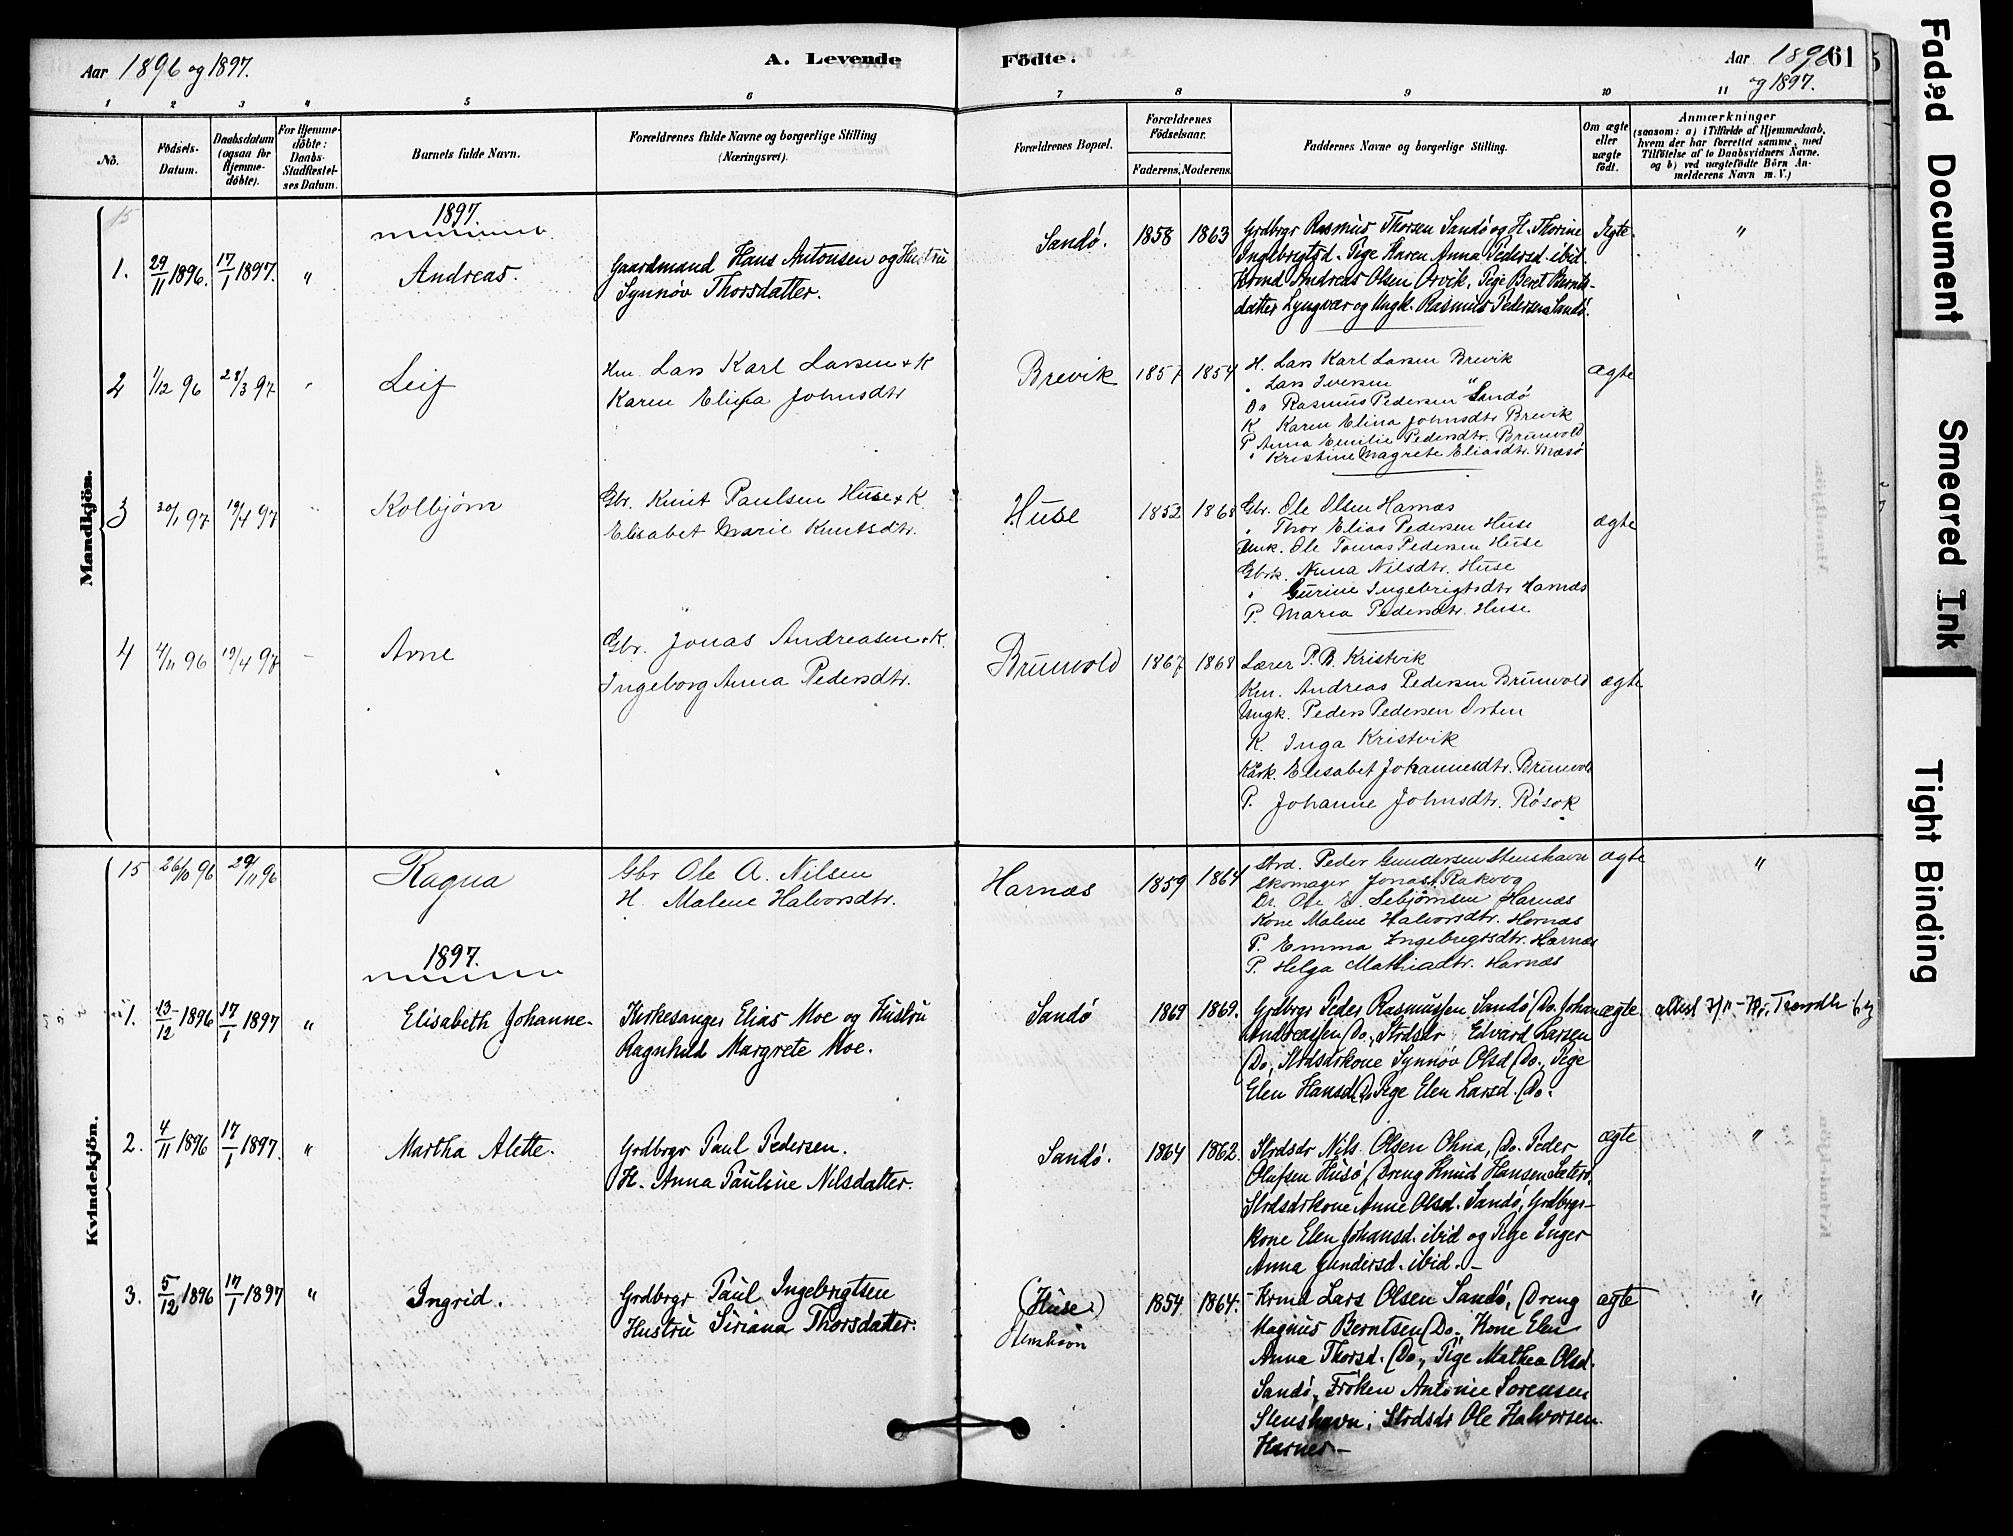 Aar 1896 og 1897.
A. Levende
Födte.
Aar 1896 61
og 1897.
1 2 3 4 5 6 7 8 9 10 11
No.
Födsels-Datum.
Daabsdatum (ogsaa for Hjemme-döbte).
For Hjemme-döbte: Daabs-Stadfæstel-ses Datum.
Barnets fulde Navn.
Forældrenes fulde Navne og borgerlige Stilling
(Næringsvei).
Forældrenes Bopæl.
Forældrenes Födselsaar.
Faderens. Moderens.
Faddernes Navne og borgerlige Stilling.
Om ægte eller uægte födt.
Anmærkninger
(saasom: a) i Tilfælde af Hjemmedaab,
hvem der har forrettet samme, med
Tilföielse af to Daabsvidners Navne.
og b) ved uægtefödte Börn An-
melderens Navn m. V.)
Mandkjön.
15
1897.
1. 29/11 1896. 17/1 1897. " Andreas. Gaardmand Hans Antonsen og Hustru
Synnöv Thorsdatter.
Sandö. 1858 1863 Grdbrgr Rasmus Thorsen Sandö og H. Thorine
Ingebrigtsd. Pige Karen Anna Pedersd. ibid.
Krmd Andreas Olsen Orvik, Pige Beret Bernts-
datter Lyngvær og Ungk. Rasmus Pedersen Sandö.
Ægte. "
2 1/12 96 28/3 97 " Leif Hm. Lars Karl Larsen & K
Karen Elina Johnsdtr
Brevik 1857 1854 H. Lars Karl Larsen Brevik
" Lars Iversen "
Do Rasmus Pedersen Sandö
K Karen Elina Johnsdtr Brevik
P Anna Emilie Pedersdtr. Brunvold
" Kristine Magrete Eliasdtr. Mæsö
ægte
3 20/1 97 19/4 97 " Kolbjörn Gbr. Knut Paulsen Huse & K
Elisabet Marie Knutsdtr.
Huse 1852 1868 Gbr. Ole Olsen Harnæs
" Thor Elias Pedersen Huse
Unk. Ole Tomas Pedersen Huse
Gbrk. Anna Nilsdtr. Huse
" Gurine Ingebrigtsdtr Harnæs
P. Maria Pedersdtr. Huse
ægte
4 4/11 96 19/4 97 - Arne Gbr. Jonas Andreasen & K.
Ingeborg Anna Pedersdtr.
Brunvold 1867 1868 Lærer P. B. Kristvik
Km. Andreas Pedersen Brunvold
Ungk. Peder Pedersen Orten
K. Inga Kristvik
Kårk. Elisabet Johannesdtr. Brunvold
P. Johanne Johnsdtr. Rösok
ægte
Kvindekjön.
15 26/10 96 29/11 96 Ragna Gbr Ole A. Nilsen
H. Malene Halvorsdtr.
Harnæs 1859 1864 Strd. Peder Gundersen Stenshavn
Skomager Jonas Rakvog
Dr. Ole E. Sebjörnsen Harnæs
Kone Malene Halvorsdtr. Harnæs
P. Emma Ingebregtsdtr. Harnæs
P. Helga Mathiadtr. Harnæs
ægte "
1897.
1. 13/12 1896 17/1 1897 " Elisabeth Johanne. Kirkesanger Elias Moe og Hustru
Ragnhild Margrete Moe.
Sandö 1869 1869. Grdbrgr Peder Rasmussen Sandö, Do. Johan
Andreassen Do., Strdsdr Edvard Larsen
Do, Strdsdrkone Synnöv Olsd Do., Pige
Elen Hansd Do Pige Elen Larsd. Do.
ægte.
2. 4/11 1896 17/1 1897. " Martha Alette. Grdbrgr Paul Pedersen.
H. Anna Pauline Nilsdatter.
Sandö. 1864 1862. Strdsdr Nils Olsen Ohna, Do. Peder
Olufsen Husö, Dreng Knud Hansen
Strdsdrkone Anne Olsd. Sandö, Grdbrgr-
kone Elen Johansd. ibid og Pige Inger
Anna Gundersd. ibid.-
ægte "
3. 5/12 1896 17/1 1897 " Ingrid. Grdbrgr Paul Ingebrigtsen
Hustru Siriana Thorsdatter.
(Huse)
Stenshavn
1854 1864. Krmd Lars Olsen Sandö, Dreng
Magnus Berntsen Do., Kone Elen
Anna Thorsd. Do., Pige Mathea Olsd.
Sandö, Fröken Antonie Sorensen
Stenshavn, Strdsdr Ole Halvorsen
Harnes.-
ægte "
Faded Document
Smeared Ink
Tight Binding